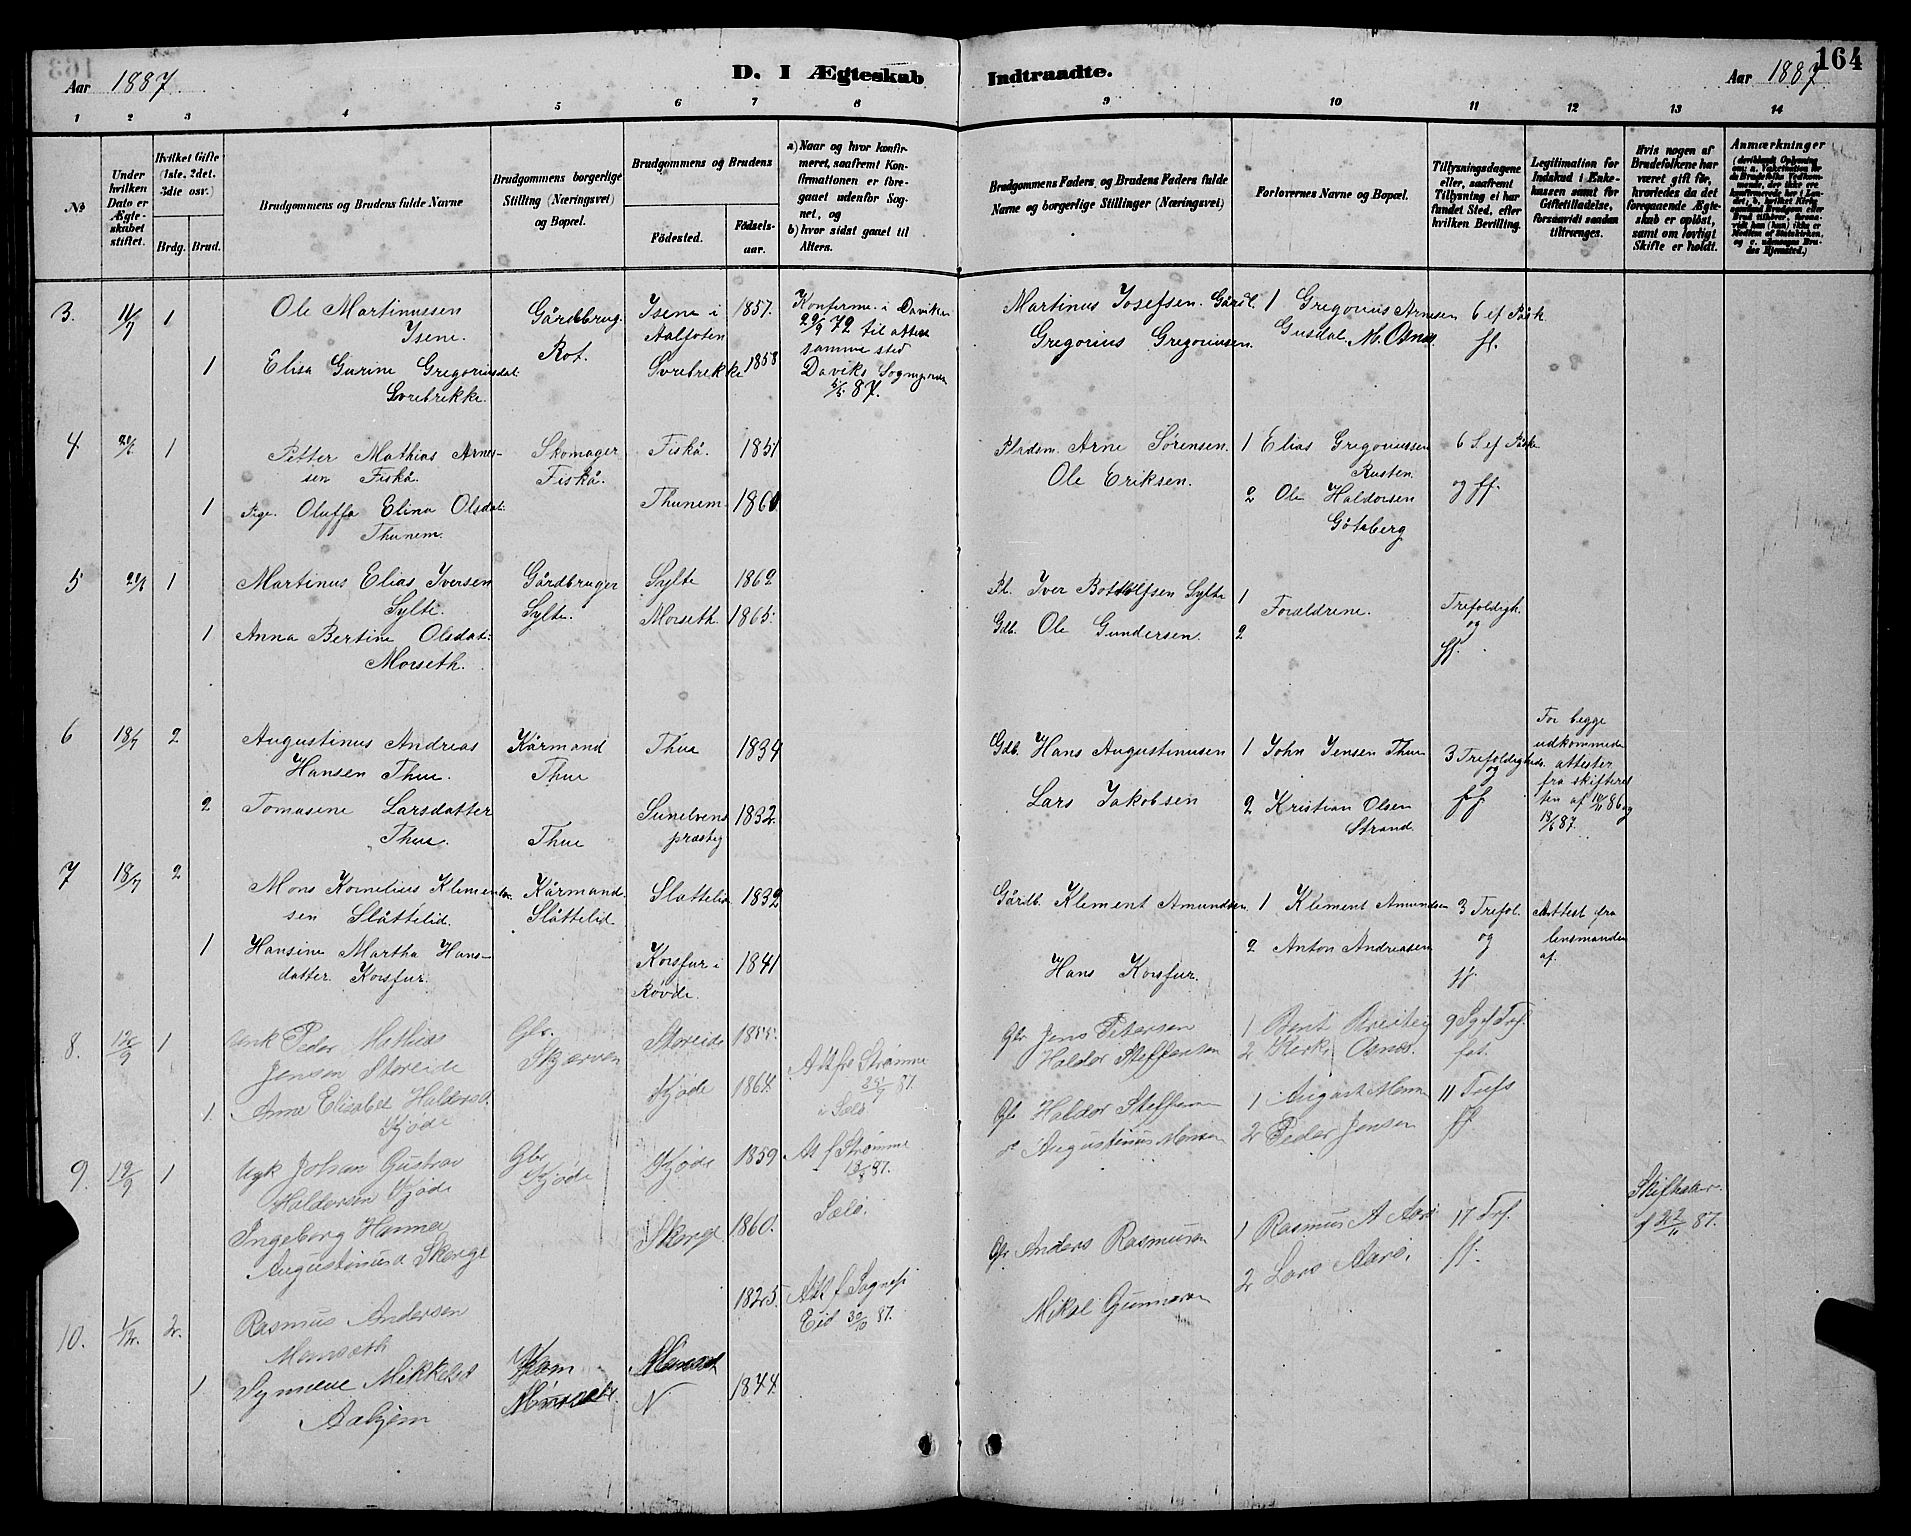 163
164
Aar 1887
D. I Ægteskab Indtraadte.
Aar 1887
1 2 3 4 5 6 7 8 9 10 11 12 13 14
No
Under hvilken Dato er Ægteskabet stiftet.
Hvilket Gifte (1ste, 2det, 3die osv.)
Brdg. Brud.
Brudgommens og Brudens fulde Navne
Brudgommens borgerlige Stilling (Næringsvei) og Bopæl.
Brudgommens og Brudens
Fødested.
Fødselsaar.
a) Naar og hvor konfirmeret, saafremt Konfirmationen er foregaaet udenfor Sognet, og
b) hvor sidst gaaet til Alters.
Brudgommens Faders og Brudens Faders fulde Navne og borgerlige Stillinger (Næringsvei)
Forlovernes Navne og Bopæl.
Tillysningsdagene eller, saafremt Tillysning ei har fundet Sted, efter hvilken Bevilling.
Legitimation for Indskud i Enkekassen samt for Giftetilladelse, forsaavidt saadan tiltrænges.
Hvis nogen af Brudefolkene har været gift før, hvorledes da det foregaaende Ægteskab er opløst, samt om lovligt Skifte er holdt.
Anmærkninger
3. 11/7 1 Ole Martinussen Isene. Gårdbrug. Rot. Isene i Aalfoten 1857. Konferme. i Daviken 29/9 72 til alters samme sted
Martinus Josefsen. Gårdb. 1 Gregorius Arnesen Gusdal. M. Osnes. 6 ef Påsk. ff.
1 Elisa Gurine Gregoriusdat. Svrebrekke. Svrebrekke 1858 Daviks Sogn 87.
Gregorius Gregoriussen.
4. 1 Petter Mathias Arnessen Fiskå. Skomager Fiskå. Fiskå. 1851
Plrdsm. Arne Sørensen. 1 Elias Gregoriussen Rusten. 6 S. ef Påske og ff.
1 Pige. Oluffa Elina Olsdat. Thunem. Thunem. 1860
Ole Eriksen. 2 Ole Haldorsen Göteberg
5 1 Martinus Elias Iversen Sylte. Gårdbruger Sylte. Sylte 1862
Pl. Iver Bottolfsen Sylte 1 Forældrene. Trefoldigh. og ff.
1 Anna Bertine Olsdat. Morseth. Morseth. 1865.
Gdb. Ole Gundersen. 2
6 18/7 2 Augustinus Andreas Hansen Thue. Kårmand Thue Thue 1834
Gdb. Hans Augustinusen 1 John Jensen Thue 3 Trefoldigheds og ff
For begge udkommede attester fra skifteretten af 86 og 18/6 87.
2 Tomasine Larsdatter Thue. Thue Sunelvens præstg 1832.
Lars Jakobsen 2 Kristian Olsen Strand.
7 18/7 2 Mons Kornelius Klementsen Slåttelid. Kårmand. Slåttelid. Slåttelid. 1832
Gårdb. Klement Amundsen. 1 Klement Amundsen 3 Trefol. og ff. Attest fra lensmanden af.
1 Hansine Martha Hansdatter Korsfur. Korsfur i Rövde. 1841
Hans Korsfur. 2 Anton Andreasen
8. 12/9 1 Unk Peder Mathias Jensen Storeide Gbr. Skjærven Storeide 1855. Att fra Strømme 87. i Selö
Gbr Jens Petersen 1 Bent 9 S. ef Trf.
Haldor Steffensen 2 Kirks. Osnes. fet.
1 Anne Elisabet Haldorsd. Kjøde Kjøde 1864.
9. 19/9 1 Ugk Johan Gustav Haldorsen Kjøde Gbr Kjøde Kjøde 1859 At f Strømme 18/8 87. Selö.
Gbr Haldor Steffensen 1 August Monsen 11 Trefs ff.
Augustinus Monsen 2 Peder Jensen
Ingeborg Hanna Augustinusd Skorge Skorge 1860.
10. 1/12 2. Rasmus Andersen Monsæth 1825. Att f Sognep Eid 30/10 87.
Gbr Anders Rasmusen 1 Rasmus A Aarö 17 Trf. ff. Skifteatt f 22/11 87.
1 Synneve Mikkelsd Aahjem Kaam Monsæt 1844.
Mikal Gunnarsen 2 Lars Aarö.